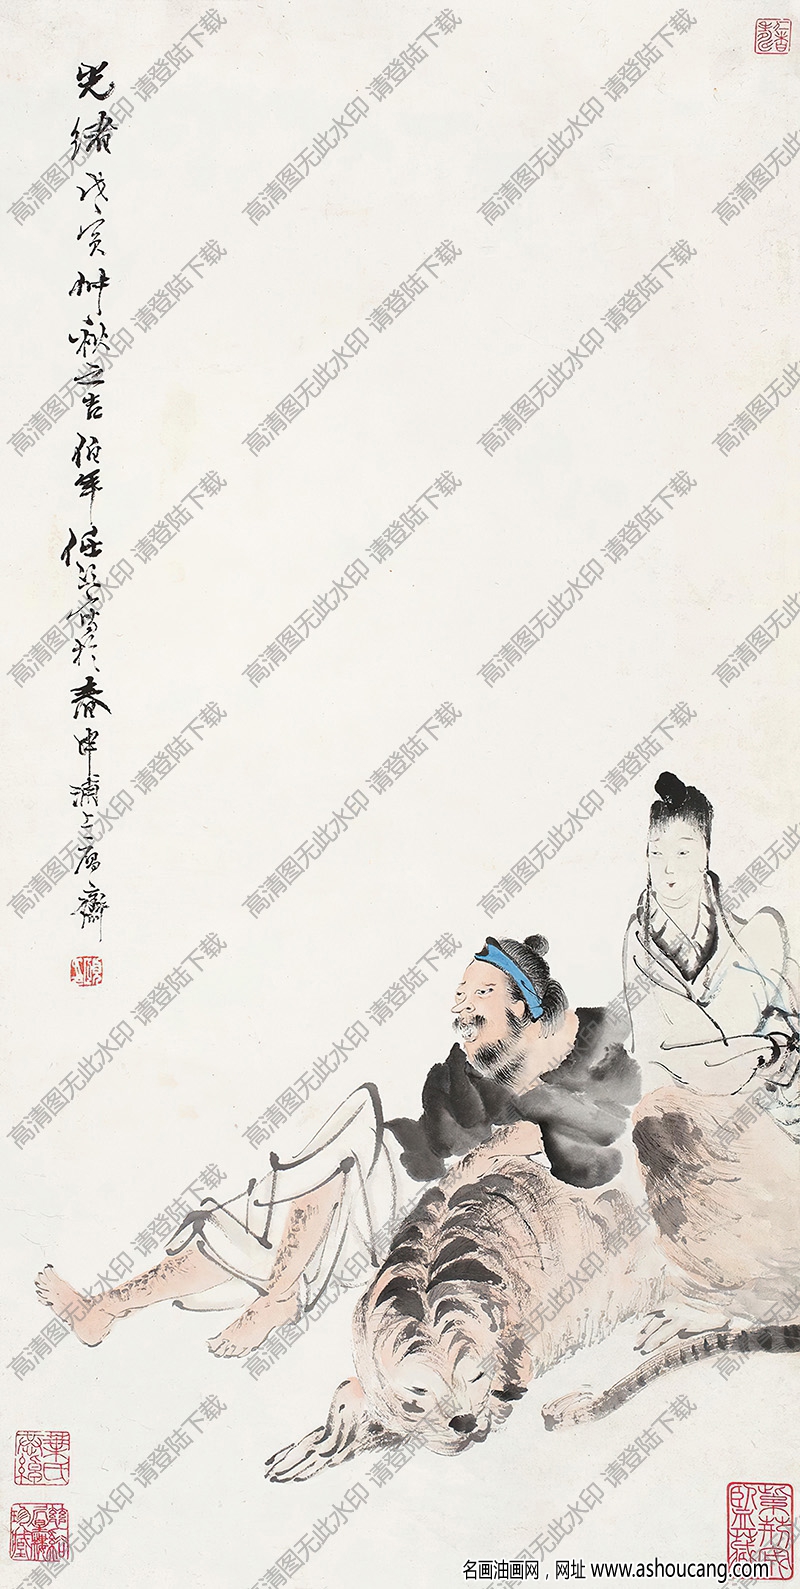 光绪戊寅艸秋之吉伯年任颐写於春申浦上寓斋
高清图无此水印 请登陆下载
名画油画网，网址 www.ashoucang.com